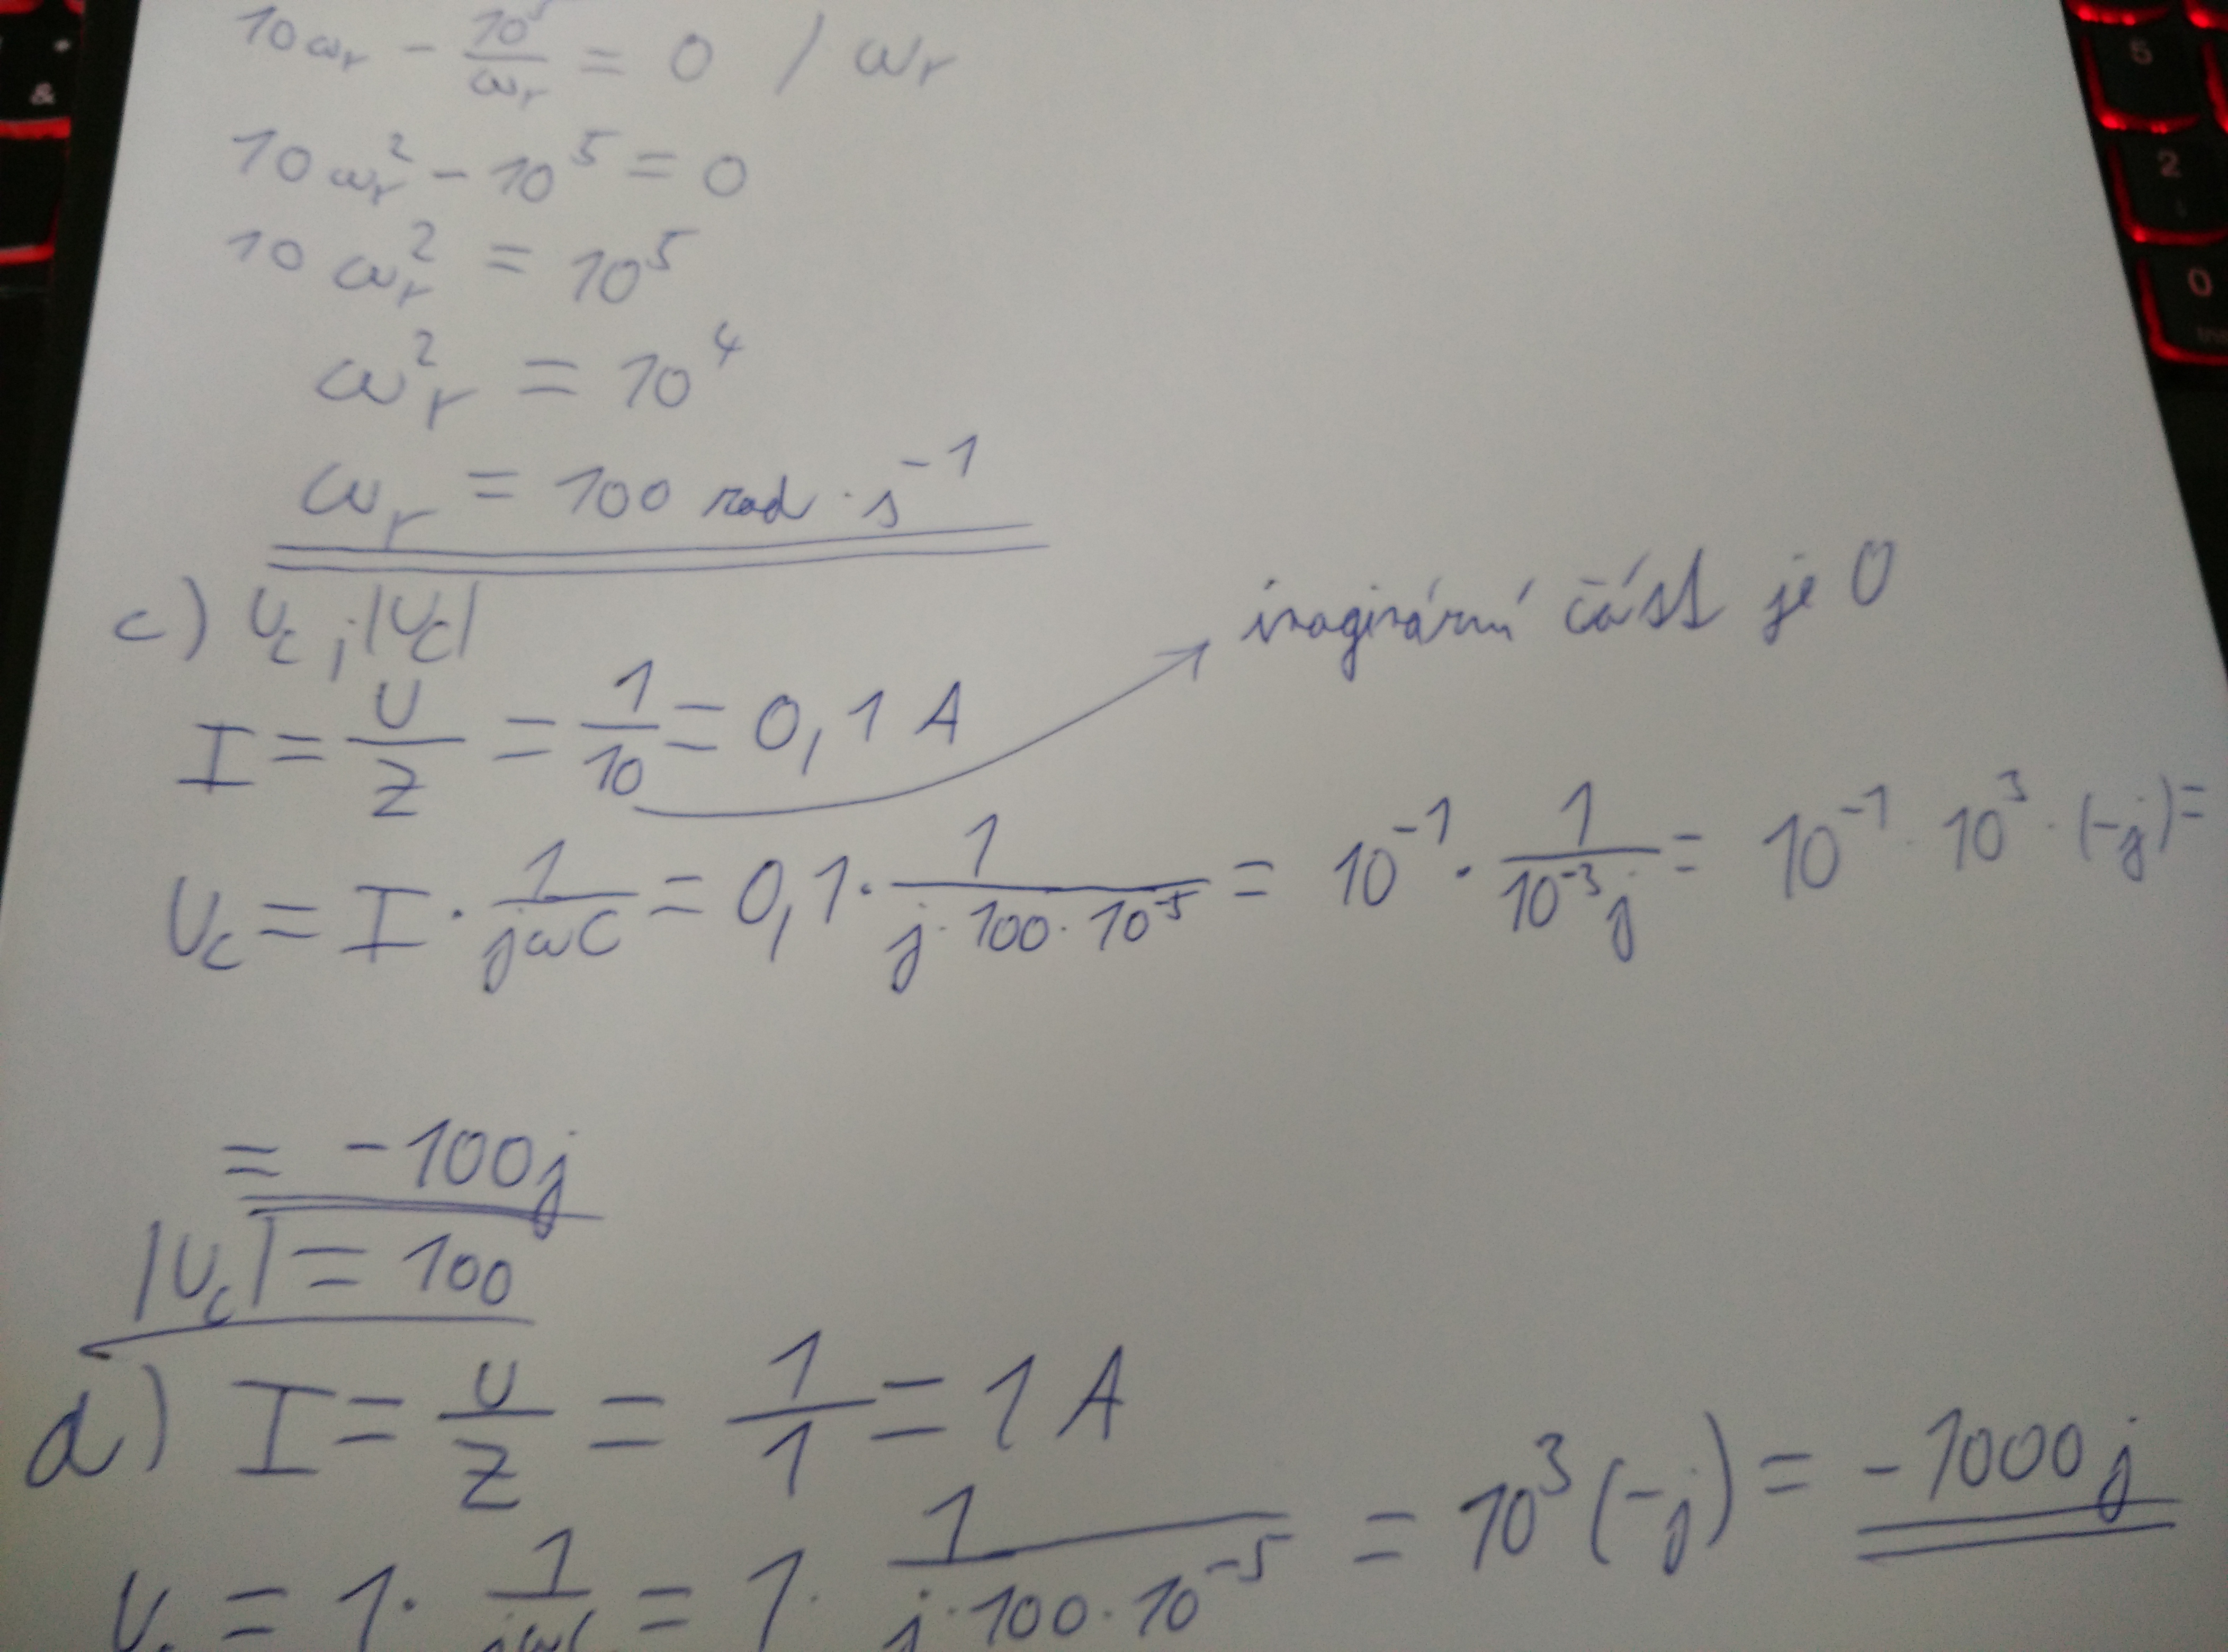 10ωᵣ - 10⁵/ωᵣ = 0 / ωᵣ
10ωᵣ² - 10⁵ = 0
10ωᵣ² = 10⁵
ω²ᵣ = 10⁴
ωᵣ = 100 rad · s⁻¹
c) U_c ; |U_c|
imaginární část je 0
I = U/Z = 1/10 = 0,1 A
U_c = I · 1/(jωC) = 0,1 · 1/(j · 100 · 10⁻⁵) = 10⁻¹ · 1/(10⁻³j) = 10⁻¹ · 10³ · (-j) =
= -100j
|U_c| = 100
d) I = U/Z = 1/1 = 1 A
U_c = 1 · 1/(jωC) = 1 · 1/(j · 100 · 10⁻⁵) = 10³(-j) = -1000j
&
5
2
0